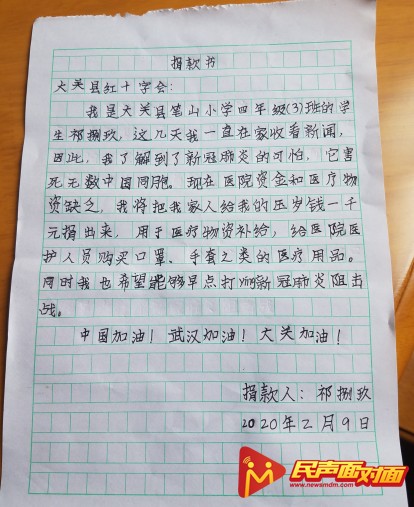 捐款书
大关县红十字会：
我是大关县笔山小学四年级(3)班的学
生祁捌玖，这几天我一直在家收看新闻，
因此，我了解到了新冠肺炎的可怕，它害
死无数中国同胞。现在医院资金和医疗物
资缺乏，我将把我家人给我的压岁钱一千
元捐出来，用于医疗物资补给，给医院医
护人员购买口罩、手套之类的医疗用品。
同时我也希望能够早点打响新冠肺炎阻击
战。
中国加油！武汉加油！大关加油！
捐款人：祁捌玖
2020年2月9日
民声面对面
www.newsmdm.com